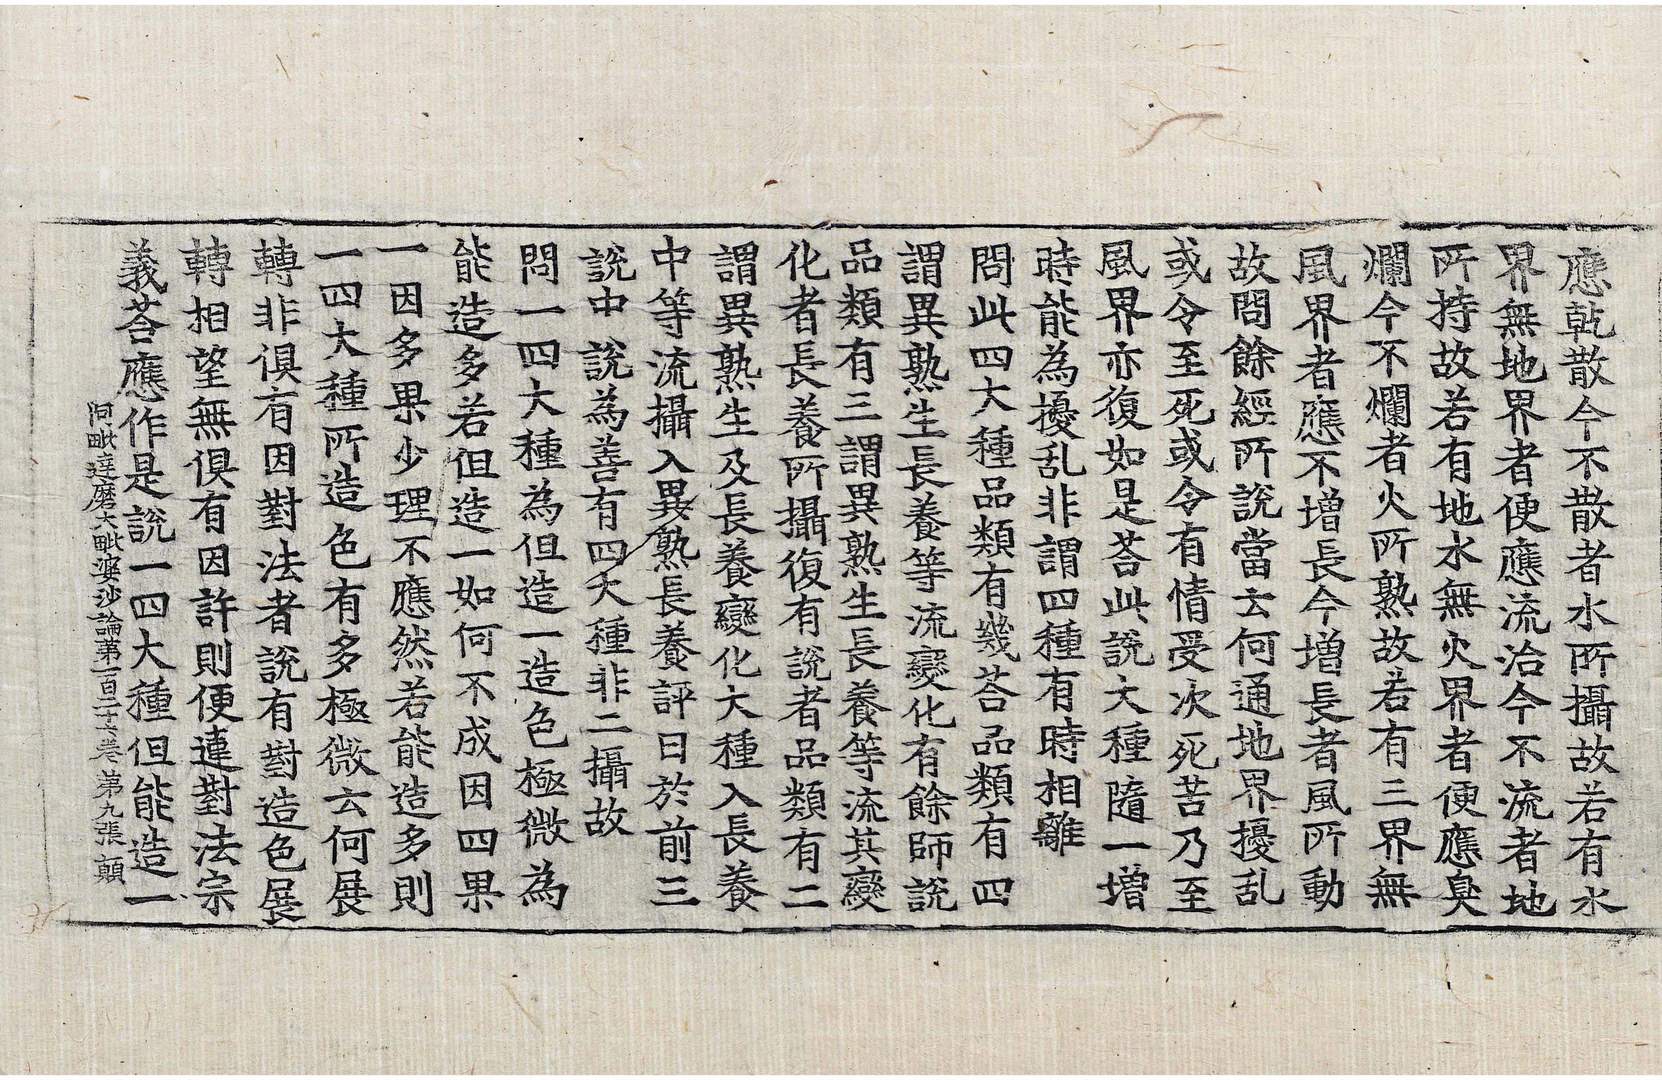 應乾散今不散者水所攝故若有水
界無地界者便應流洽今不流者地
所持故若有地水無火界者便應臭
爛今不爛者火所熟故若有三界無
風界者應不增長今增長者風所動
故問餘經所說當云何通地界擾乱
或令至死或令有情受次死苦乃至
風界亦復如是荅此說大種隨一增
時能為擾乱非謂四種有時相離
問此四大種品類有幾荅品類有四
謂異熟生長養等流變化有餘師說
品類有三謂異熟生長養等流其變
化者長養所攝復有說者品類有二
謂異熟生及長養變化大種入長養
中等流攝入異熟長養評曰於前三
說中說為善有四大種非二攝故
問一四大種為但造一造色極微為
能造多若但造一如何不成因四果
一因多果少理不應然若能造多則
一四大種所造色有多極微云何展
轉非俱有因對法者說有對造色展
轉相望無俱有因許則便違對法宗
義荅應作是說一四大種但能造一
阿毗達磨大毗婆沙論第一百二十七卷 第九張 顛